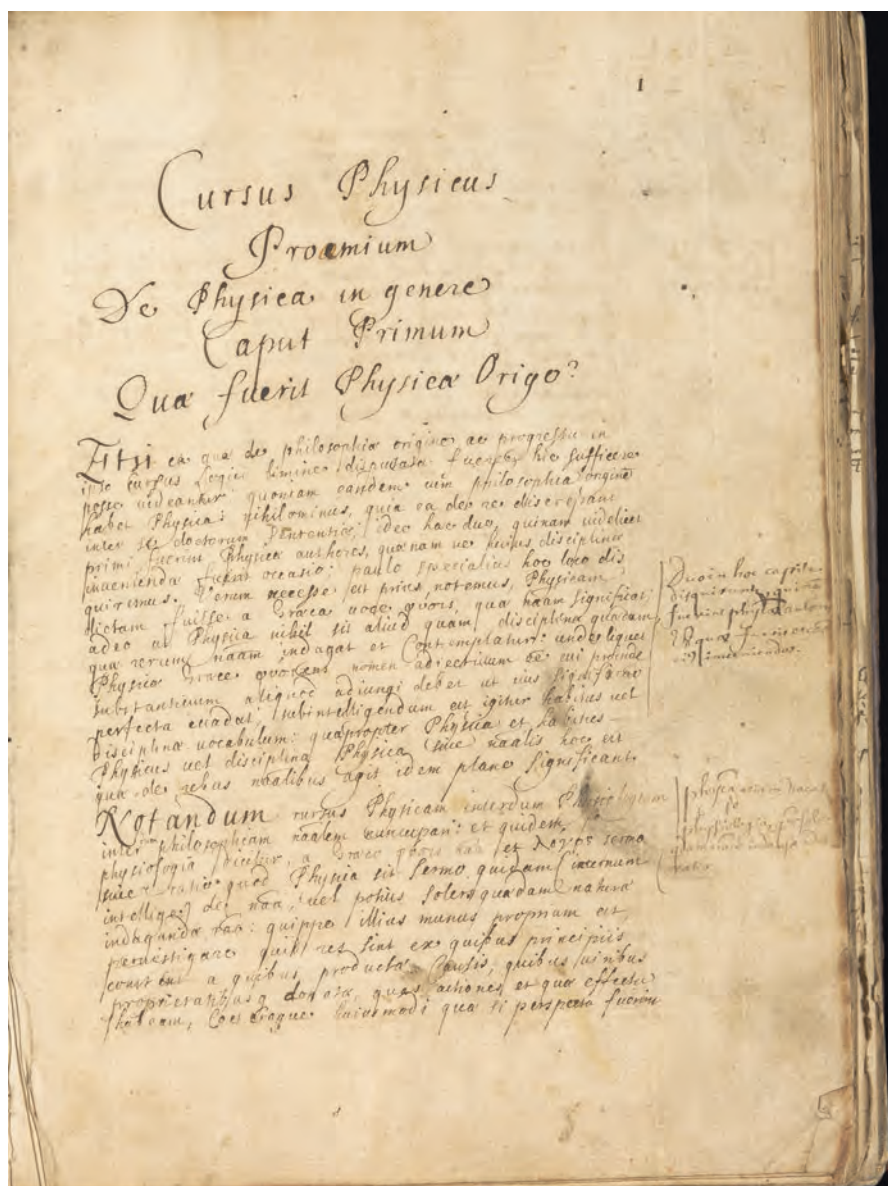 1
Cursus Physicus
Proœmium
De Physica in genere
Caput Primum
Quæ fuerit Physicæ Origo?
Etsi ea quæ de philosophiæ origine ac progressu in
ipso cursus Logici limine disputata fuere hic sufficere
posse videantur quoniam eandem cum philosophia originē
habet Physica: nihilominus, quia ea de re discrepant
inter se doctorum sententiæ; ideo hæc duo, quinam videlicet
primi fuerint Physicæ authores, quænam ve huius disciplinæ
inveniendæ fuerit occasio; paulo specialius hoc loco dis
quiremus. Verum necesse est prius, notemus, Physicam
dictam fuisse a Græca voce φύσις, quæ nāam significat;
adeo ut Physica nihil sit aliud quam disciplina quædam
quæ rerum nāam indagat et Contemplatur: unde liquet
Physica Græce nomen adiectivum ēe cui proinde
substantivum aliquod adiungi debet ut eius significāo
perfecta evadat; subintelligendum est igitur habitus vel
Disciplinæ vocabulum: quapropter Physica et habitus
Physicus vel disciplina Physica sive nāalis hoc est
quæ de rebus nāalibus agit idem plane significant.
Notandum rursus Physicam interdum Physiologiam
interdum philosophiam nāalem nuncupari: et quidem
physiologia dicitur, a Græco φύσις nāa et λόγος sermo
sive ratio quod Physica sit Sermo quidam internum
intellige de nāa, vel potius Solers quædam naturæ
indagandæ rāo: quippe illius munus proprium est,
pervestigare quid res sint ex quibus principiis
constent a quibus productæ Causis, quibus viribus
proprietatibusq donatæ, quas actiones, et quæ effecta
habeant, Cæteraque huiusmodi quæ si perspecta fuerint
Duo in hoc capite
disquiruntur, quinā
fuerint physicæ autores
et quæ fuerit occasio
eius inveniendæ.